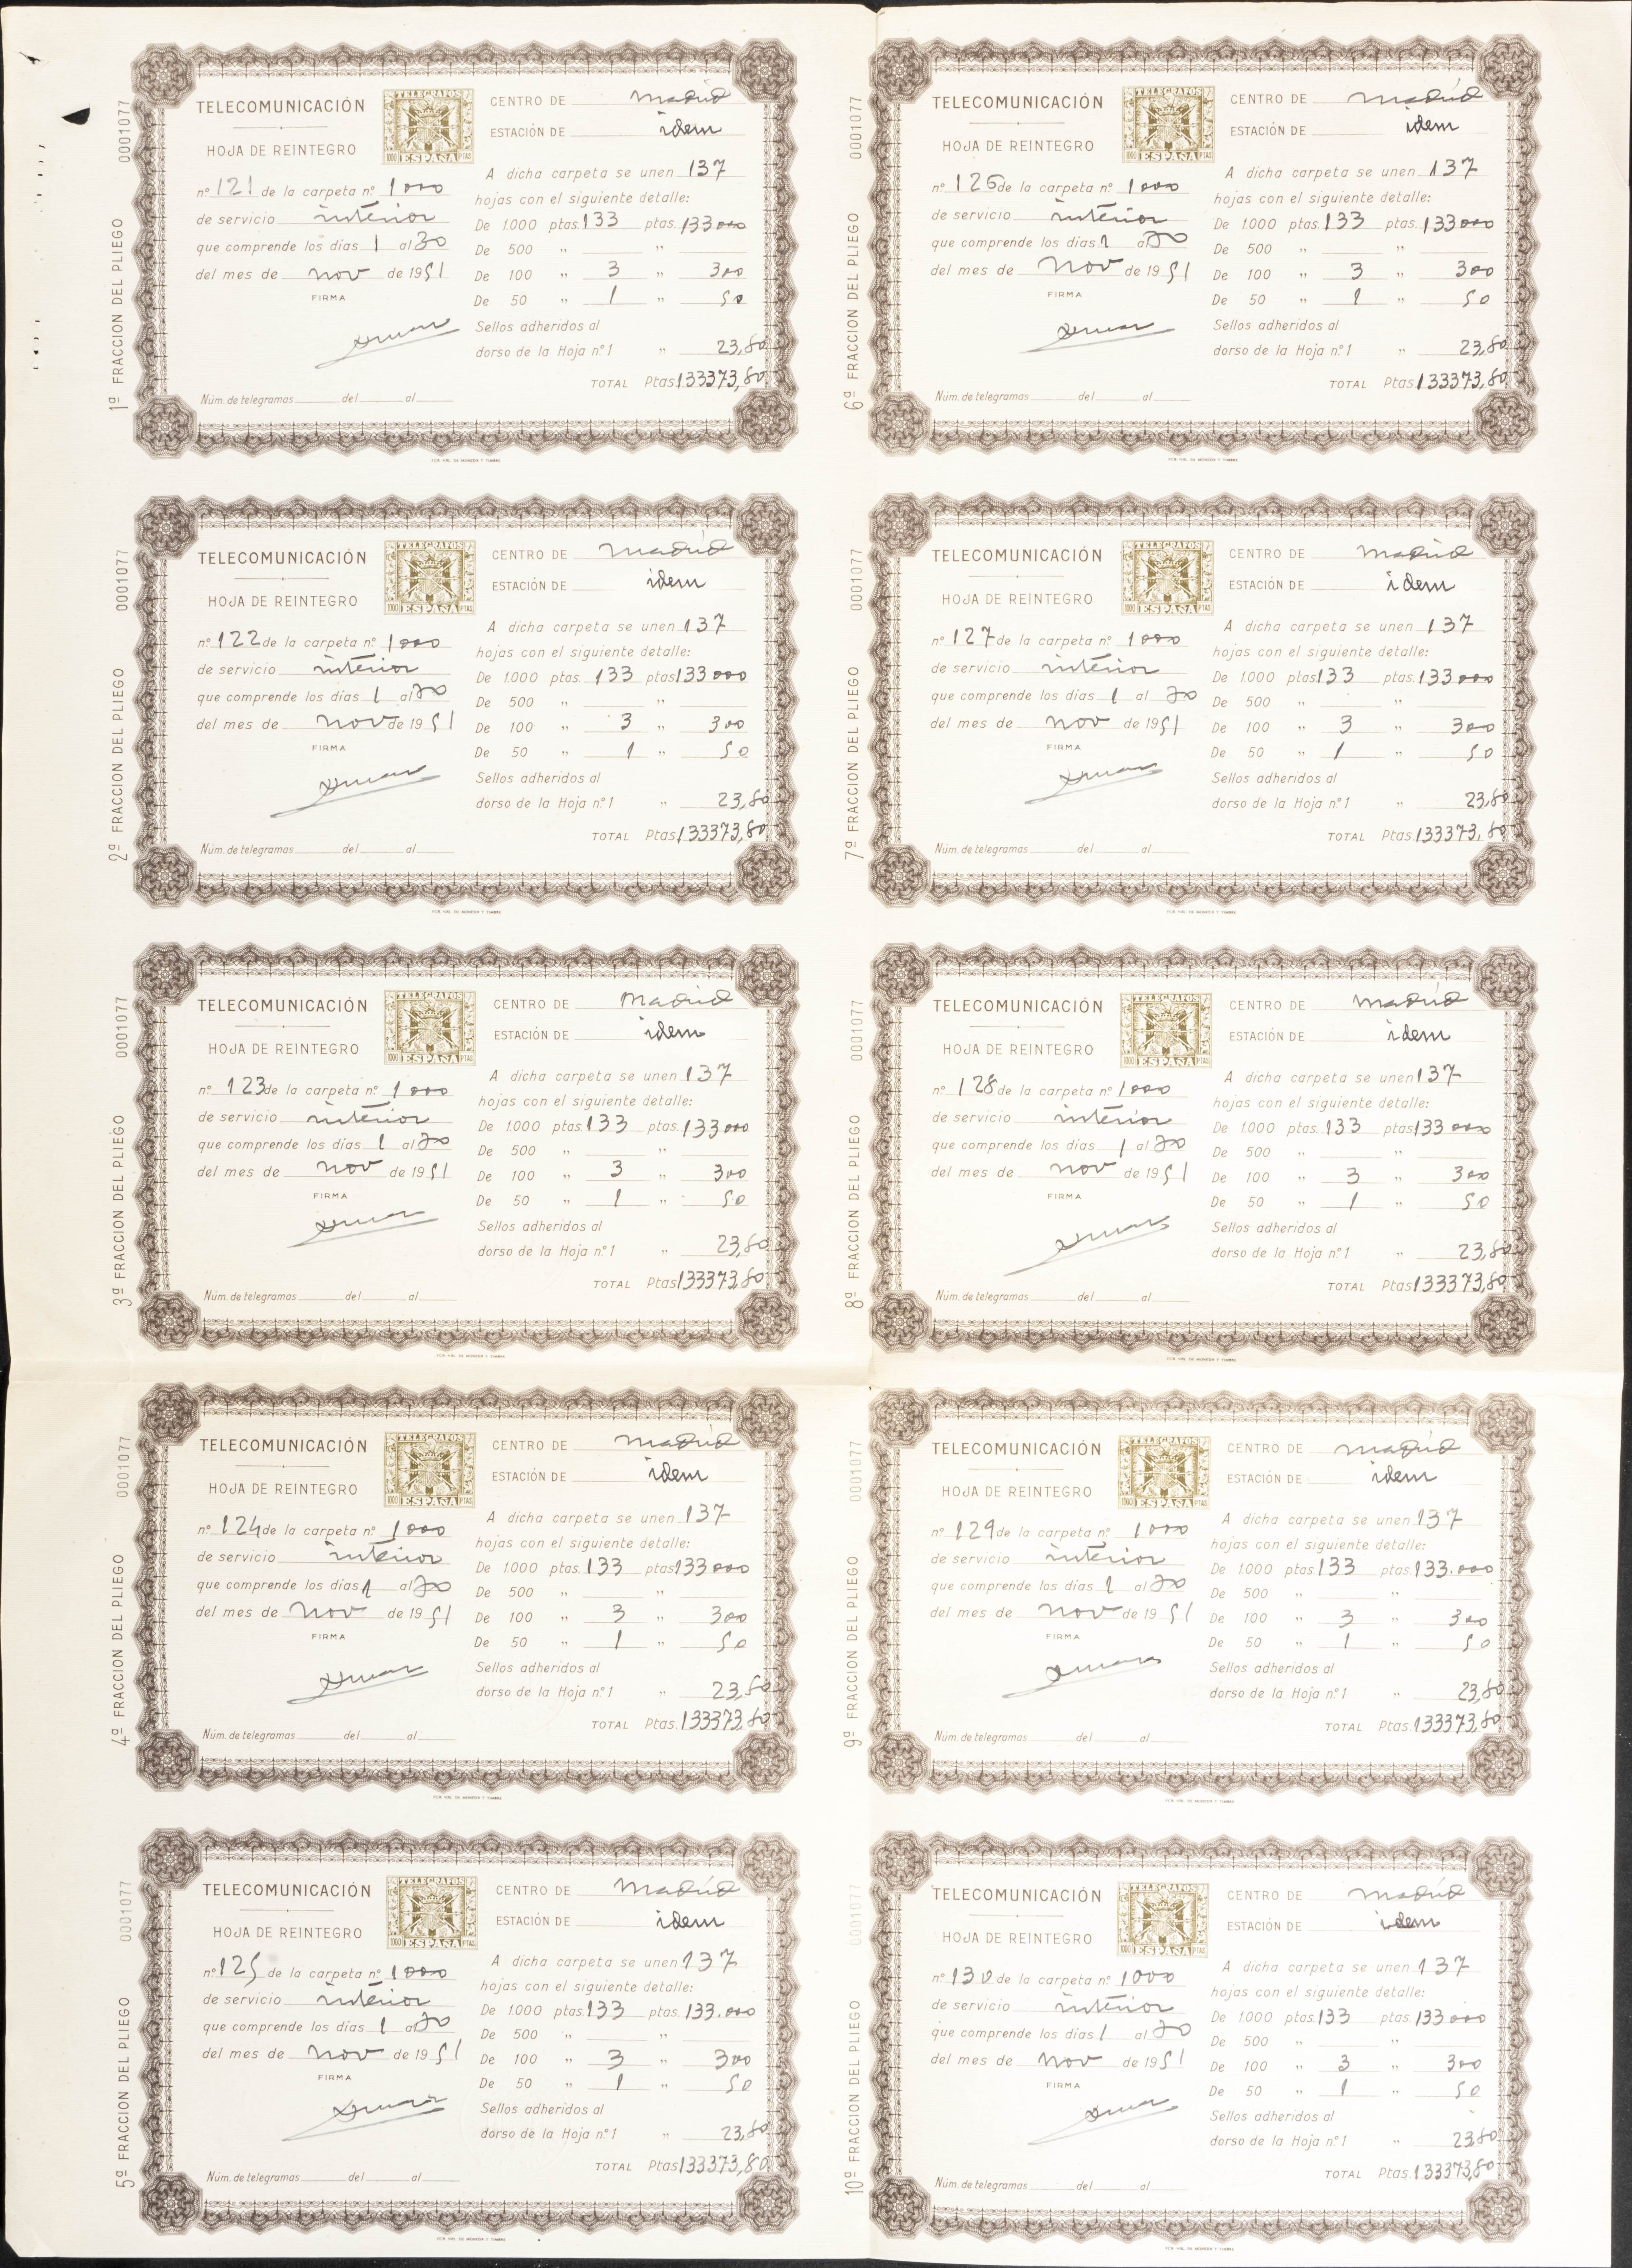 1ª FRACCION DEL PLIEGO 0001077
TELECOMUNICACIÓN
HOJA DE REINTEGRO
nº 121 de la carpeta nº 1000
de servicio interior
que comprende los días 1 al 30
del mes de nov de 1951
FIRMA
Núm. de telegramas del al
TELEGRAFOS
1000 ESPAÑA PTAS
CENTRO DE Madrid
ESTACIÓN DE idem
A dicha carpeta se unen 137
hojas con el siguiente detalle:
De 1.000 ptas. 133 ptas. 133000
De 500 " "
De 100 " 3 " 300
De 50 " 1 " 50
Sellos adheridos al
dorso de la Hoja nº 1 " 23,80
TOTAL Ptas. 133373,80
FCA. NAL. DE MONEDA Y TIMBRE
2ª FRACCION DEL PLIEGO 0001077
TELECOMUNICACIÓN
HOJA DE REINTEGRO
nº 122 de la carpeta nº 1000
de servicio interior
que comprende los días 1 al 30
del mes de nov de 1951
FIRMA
Núm. de telegramas del al
TELEGRAFOS
1000 ESPAÑA PTAS
CENTRO DE Madrid
ESTACIÓN DE idem
A dicha carpeta se unen 137
hojas con el siguiente detalle:
De 1.000 ptas. 133 ptas. 133000
De 500 " "
De 100 " 3 " 300
De 50 " 1 " 50
Sellos adheridos al
dorso de la Hoja nº 1 " 23,80
TOTAL Ptas. 133373,80
FCA. NAL. DE MONEDA Y TIMBRE
3ª FRACCION DEL PLIEGO 0001077
TELECOMUNICACIÓN
HOJA DE REINTEGRO
nº 123 de la carpeta nº 1000
de servicio interior
que comprende los días 1 al 30
del mes de nov de 1951
FIRMA
Núm. de telegramas del al
TELEGRAFOS
1000 ESPAÑA PTAS
CENTRO DE Madrid
ESTACIÓN DE idem
A dicha carpeta se unen 137
hojas con el siguiente detalle:
De 1.000 ptas. 133 ptas. 133000
De 500 " "
De 100 " 3 " 300
De 50 " 1 " 50
Sellos adheridos al
dorso de la Hoja nº 1 " 23,80
TOTAL Ptas. 133373,80
FCA. NAL. DE MONEDA Y TIMBRE
4ª FRACCION DEL PLIEGO 0001077
TELECOMUNICACIÓN
HOJA DE REINTEGRO
nº 124 de la carpeta nº 1000
de servicio interior
que comprende los días 1 al 30
del mes de nov de 1951
FIRMA
Núm. de telegramas del al
TELEGRAFOS
1000 ESPAÑA PTAS
CENTRO DE Madrid
ESTACIÓN DE idem
A dicha carpeta se unen 137
hojas con el siguiente detalle:
De 1.000 ptas. 133 ptas. 133000
De 500 " "
De 100 " 3 " 300
De 50 " 1 " 50
Sellos adheridos al
dorso de la Hoja nº 1 " 23,80
TOTAL Ptas. 133373,80
FCA. NAL. DE MONEDA Y TIMBRE
5ª FRACCION DEL PLIEGO 0001077
TELECOMUNICACIÓN
HOJA DE REINTEGRO
nº 125 de la carpeta nº 1000
de servicio interior
que comprende los días 1 al 30
del mes de nov de 1951
FIRMA
Núm. de telegramas del al
TELEGRAFOS
1000 ESPAÑA PTAS
CENTRO DE Madrid
ESTACIÓN DE idem
A dicha carpeta se unen 137
hojas con el siguiente detalle:
De 1.000 ptas. 133 ptas. 133.000
De 500 " "
De 100 " 3 " 300
De 50 " 1 " 50
Sellos adheridos al
dorso de la Hoja nº 1 " 23,80
TOTAL Ptas. 133373,80
FCA. NAL. DE MONEDA Y TIMBRE
6ª FRACCION DEL PLIEGO 0001077
TELECOMUNICACIÓN
HOJA DE REINTEGRO
nº 126 de la carpeta nº 1000
de servicio interior
que comprende los días 1 al 30
del mes de nov de 1951
FIRMA
Núm. de telegramas del al
TELEGRAFOS
1000 ESPAÑA PTAS
CENTRO DE Madrid
ESTACIÓN DE idem
A dicha carpeta se unen 137
hojas con el siguiente detalle:
De 1.000 ptas. 133 ptas. 133000
De 500 " "
De 100 " 3 " 300
De 50 " 1 " 50
Sellos adheridos al
dorso de la Hoja nº 1 " 23,80
TOTAL Ptas. 133373,80
FCA. NAL. DE MONEDA Y TIMBRE
7ª FRACCION DEL PLIEGO 0001077
TELECOMUNICACIÓN
HOJA DE REINTEGRO
nº 127 de la carpeta nº 1000
de servicio interior
que comprende los días 1 al 30
del mes de nov de 1951
FIRMA
Núm. de telegramas del al
TELEGRAFOS
1000 ESPAÑA PTAS
CENTRO DE Madrid
ESTACIÓN DE idem
A dicha carpeta se unen 137
hojas con el siguiente detalle:
De 1.000 ptas. 133 ptas. 133000
De 500 " "
De 100 " 3 " 300
De 50 " 1 " 50
Sellos adheridos al
dorso de la Hoja nº 1 " 23,80
TOTAL Ptas. 133373,80
FCA. NAL. DE MONEDA Y TIMBRE
8ª FRACCION DEL PLIEGO 0001077
TELECOMUNICACIÓN
HOJA DE REINTEGRO
nº 128 de la carpeta nº 1000
de servicio interior
que comprende los días 1 al 30
del mes de nov de 1951
FIRMA
Núm. de telegramas del al
TELEGRAFOS
1000 ESPAÑA PTAS
CENTRO DE Madrid
ESTACIÓN DE idem
A dicha carpeta se unen 137
hojas con el siguiente detalle:
De 1.000 ptas. 133 ptas. 133000
De 500 " "
De 100 " 3 " 300
De 50 " 1 " 50
Sellos adheridos al
dorso de la Hoja nº 1 " 23,80
TOTAL Ptas. 133373,80
FCA. NAL. DE MONEDA Y TIMBRE
9ª FRACCION DEL PLIEGO 0001077
TELECOMUNICACIÓN
HOJA DE REINTEGRO
nº 129 de la carpeta nº 1000
de servicio interior
que comprende los días 1 al 30
del mes de nov de 1951
FIRMA
Núm. de telegramas del al
TELEGRAFOS
1000 ESPAÑA PTAS
CENTRO DE Madrid
ESTACIÓN DE idem
A dicha carpeta se unen 137
hojas con el siguiente detalle:
De 1.000 ptas. 133 ptas. 133.000
De 500 " "
De 100 " 3 " 300
De 50 " 1 " 50
Sellos adheridos al
dorso de la Hoja nº 1 " 23,80
TOTAL Ptas. 133373,80
FCA. NAL. DE MONEDA Y TIMBRE
10ª FRACCION DEL PLIEGO 0001077
TELECOMUNICACIÓN
HOJA DE REINTEGRO
nº 130 de la carpeta nº 1000
de servicio interior
que comprende los días 1 al 30
del mes de nov de 1951
FIRMA
Núm. de telegramas del al
TELEGRAFOS
1000 ESPAÑA PTAS
CENTRO DE Madrid
ESTACIÓN DE idem
A dicha carpeta se unen 137
hojas con el siguiente detalle:
De 1.000 ptas. 133 ptas. 133000
De 500 " "
De 100 " 3 " 300
De 50 " 1 " 50
Sellos adheridos al
dorso de la Hoja nº 1 " 23,80
TOTAL Ptas. 133373,80
FCA. NAL. DE MONEDA Y TIMBRE